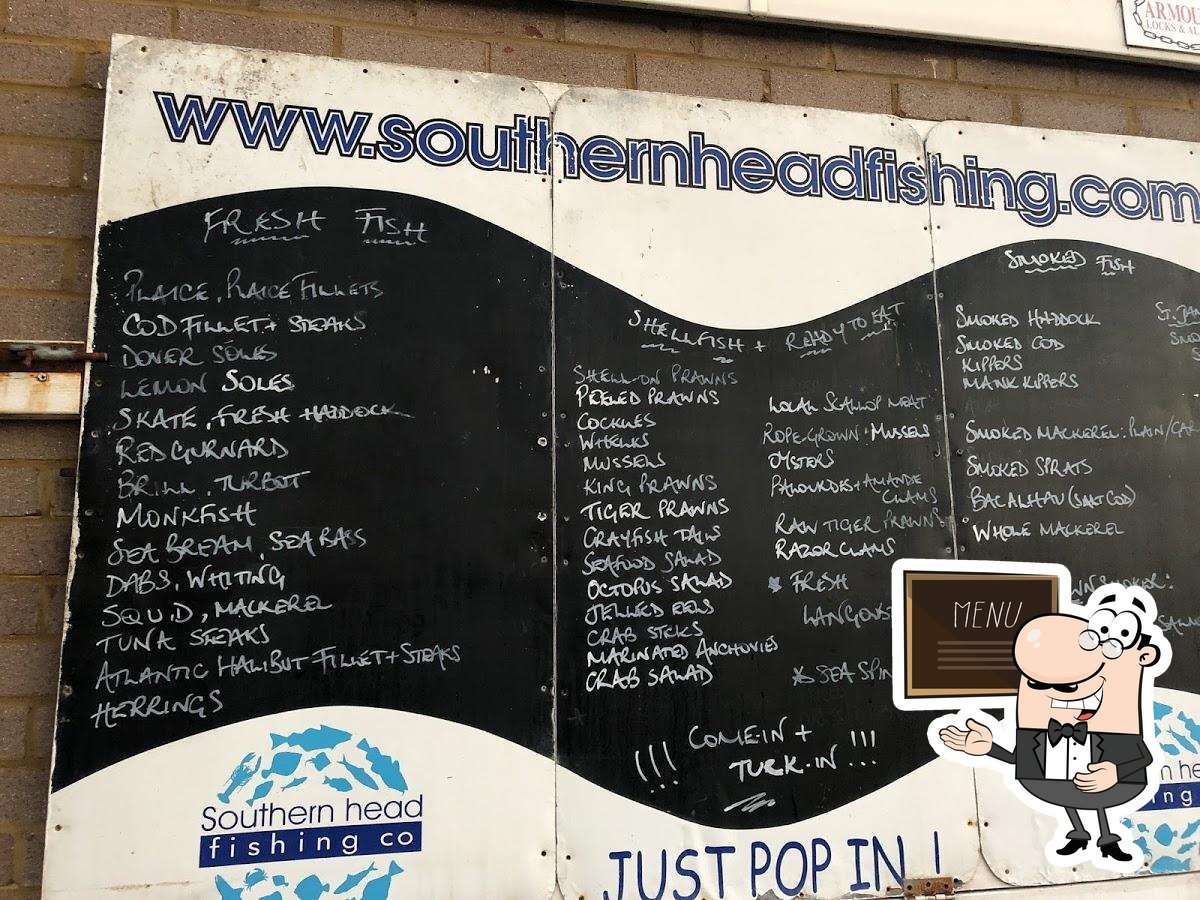 ARMOU
LOCKS & AL
www.southernheadfishing.com
FRESH FISH
PLAICE, PLAICE FILLETS
COD FILLET + STEAKS
DOVER SOLES
LEMON SOLES
SKATE, FRESH HADDOCK
RED GURNARD
BRILL, TURBOT
MONKFISH
SEA BREAM, SEA BASS
DABS, WHITING
SQUID, MACKEREL
TUNA STEAKS
ATLANTIC HALIBUT FILLET + STEAKS
HERRINGS
Southern head
fishing co
SHELLFISH + READY TO EAT
SHELL-ON PRAWNS
PEELED PRAWNS
COCKLES
WHELKS
MUSSELS
KING PRAWNS
TIGER PRAWNS
CRAYFISH TAILS
SEAFOOD SALAD
OCTOPUS SALAD
JELLIED EELS
CRAB STICKS
MARINATED ANCHOVIES
CRAB SALAD
LOCAL SCALLOP MEAT
ROPE-GROWN MUSSELS
OYSTERS
PALOURDES + AMANDE
CLAMS
RAW TIGER PRAWNS
RAZOR CLAMS
* FRESH
LANGOUS
* SEA SPIN
!!! COME-IN +
TUCK-IN !!!
JUST POP IN !
SMOKED FISH
SMOKED HADDOCK
SMOKED COD
KIPPERS
MANX KIPPERS
SMOKED MACKEREL: PLAIN/GAR
SMOKED SPRATS
BACALHAU (SALT COD)
WHOLE MACKEREL
WN SMOKER:
MENU